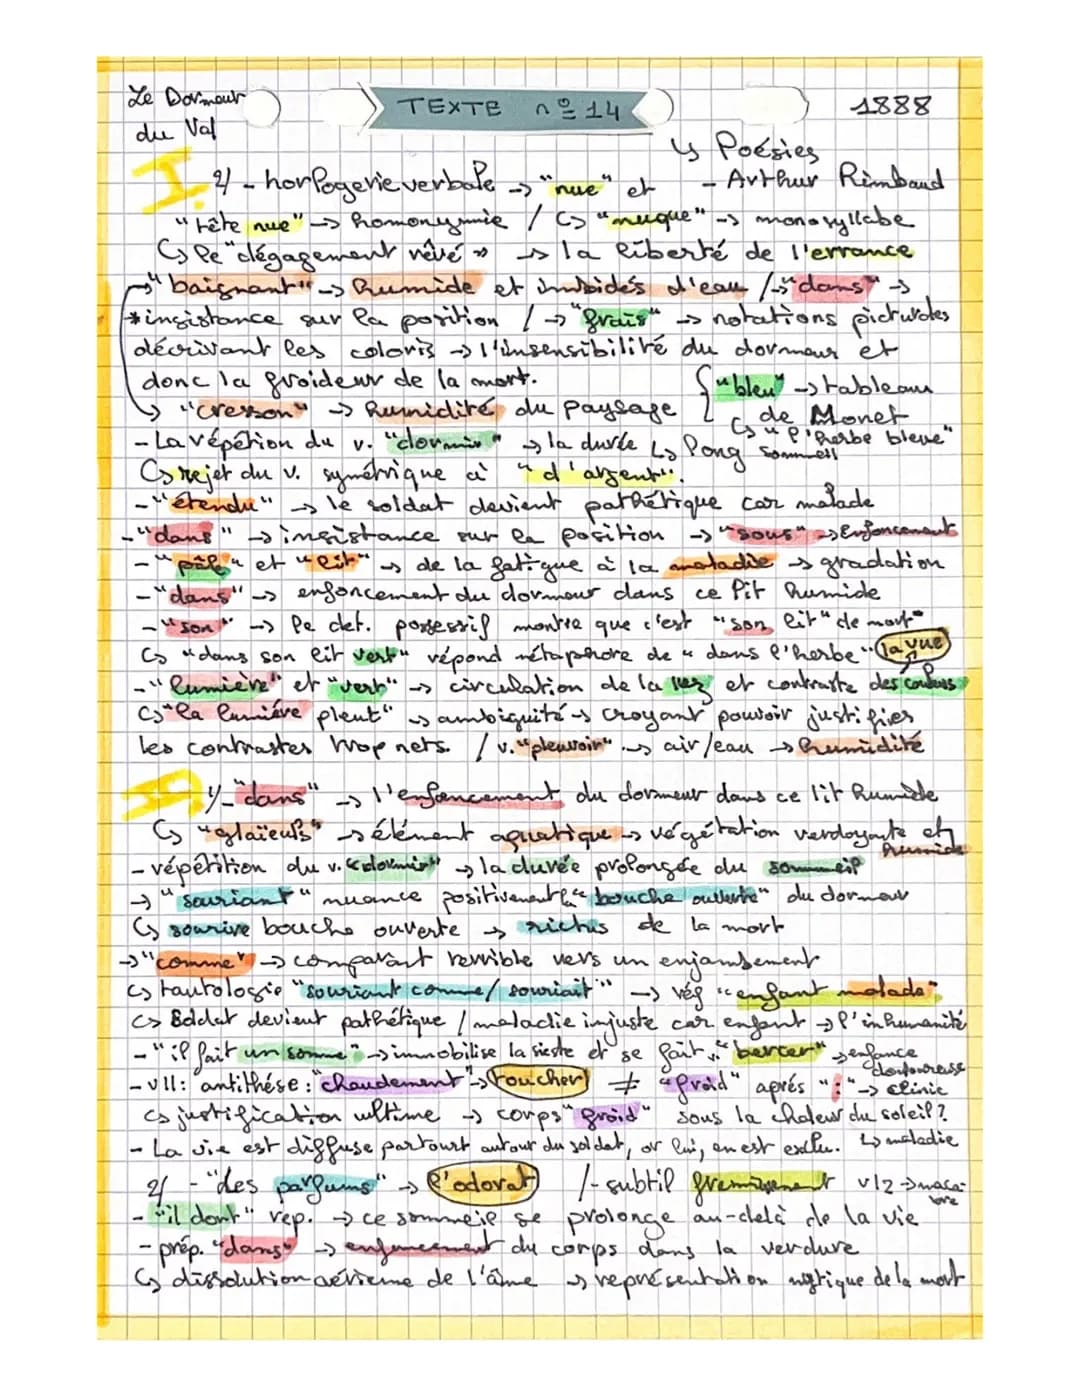 Le Dormeur
du Val
TEXTE n° 14
1888
↳ Poésies
- Arthur Rimbaud
I. 2/ - horlogerie verbale → "nue" et
"tête nue" → homonymie / ↳ "nuque" → monosyllabe
↳ le "dégagement rêvé" → la liberté de l'errance
→ "baignant" → humide et imbibés d'eau / → "dans" →
* insistance sur la position / → "frais" → notations picturales
décrivant les coloris → l'insensibilité du dormeur et
donc la froideur de la mort.
{ "bleu" → tableau
↳ "cresson" → humidité du paysage
de Monet
↳ "l'herbe bleue"
- La répétion du v. "dormir" → la durée ↳ long sommeil
↳ rejet du v. symétrique à "d'argent".
- "étendu" → le soldat devient pathétique car malade
- "dans" → insistance sur la position → "sous" → Enfoncement
- "pâle" et "lit" → de la fatigue à la maladie → gradation
- "dans" → enfoncement du dormeur dans ce lit humide
- "son" → le det. possessif montre que c'est "son lit" de mort
↳ "dans son lit vert" répond métaphore de "dans l'herbe" la vue
- "lumière" et "vert" → circulation de la et contraste des couleurs
↳ "la lumière pleut" → ambiguité → croyant pouvoir justifier
les contrastes trop nets. / v. "pleuvoir" → air/eau → humidité
II. 1/ - "dans" → l'enfoncement du dormeur dans ce lit humide
↳ "glaïeuls" → élément aquatique → végétation verdoyante et
humide
- répétition du v. "dormir" → la durée prolongée du sommeil
→ "souriant" nuance positivement la "bouche ouverte" du dormeur
↳ sourire bouche ouverte → rictus de la mort
→ "comme" → comparant terrible vers un enjambement
↳ tautologie "souriant comme/ souriait" → rég "enfant malade"
↳ Soldat devient pathétique / maladie injuste car enfant → l'inhumanité
- "il fait un somme" → immobilise la sieste et se fait "bercer" → enfance
doufoureuse
- v11: antithése: "chaudement" → toucher ≠ "froid" aprés ":" → clinic
↳ justification ultime → corps "froid" sous la chaleur du soleil?
↳ maladie
- La vie est diffuse partourt autour du soldat, or lui, en est exclu.
2/ - "des parfums" → l'odorat / - subtil fremissement v12 → macabre
- "il dort" rep. → ce sommeil se prolonge au-delà de la vie
- prép. "dans" → enfoncement du corps dans la verdure
↳ dissolution aérienne de l'âme → représentation mytique de la mort